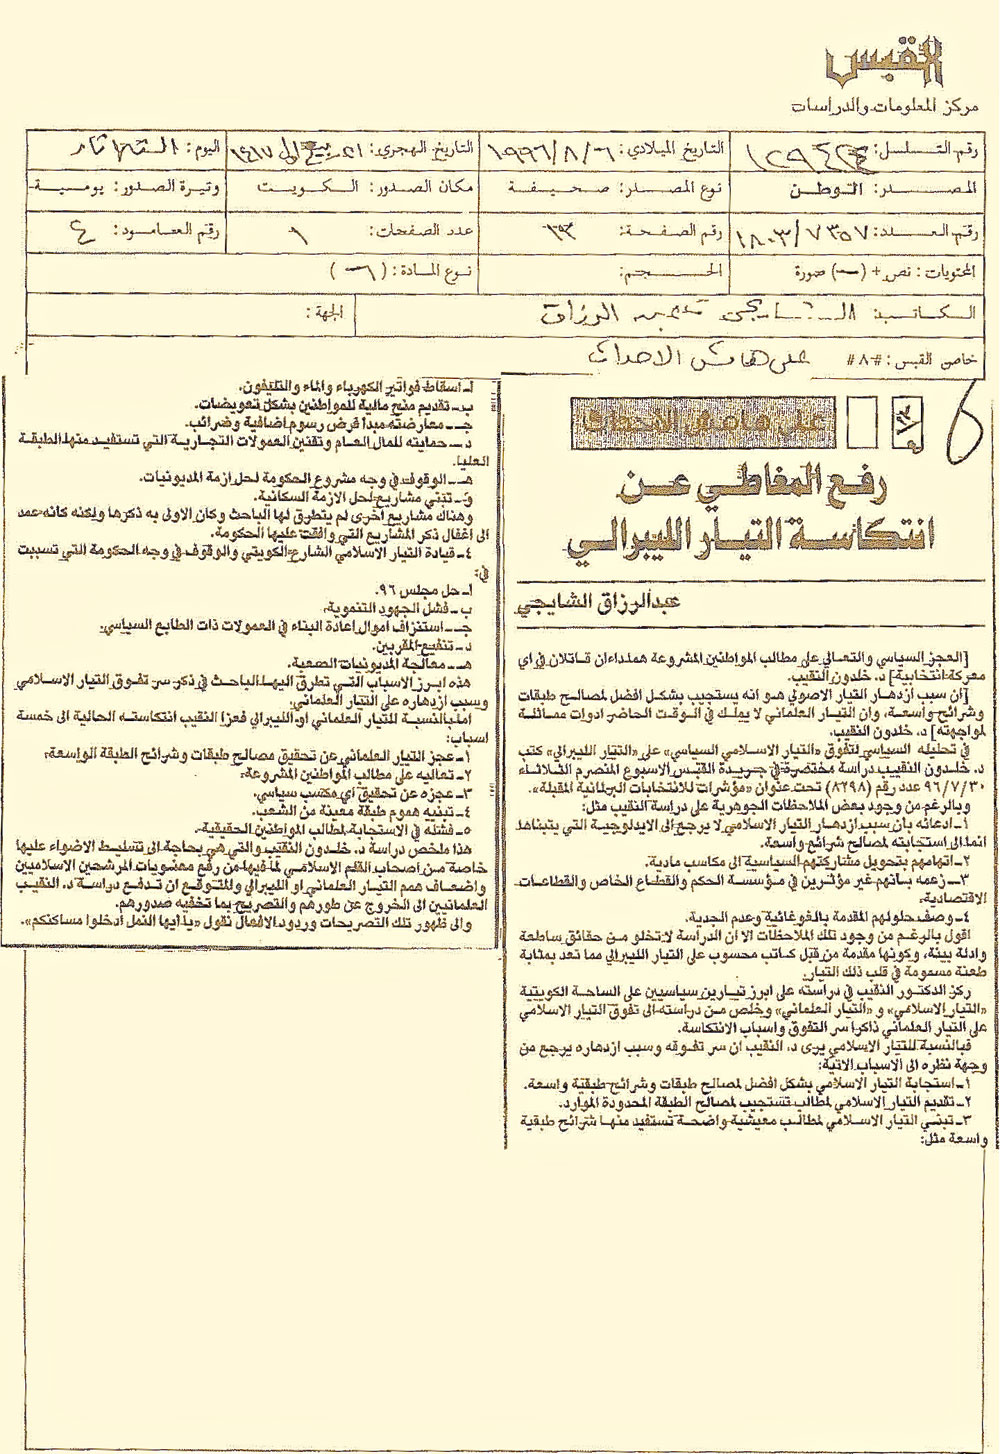 القبس
مركز المعلومات والدراسات
رقم التسلسل: ١٢٩٤٢٤ التاريخ الميلادي: ١٩٩٦/٨/٦ التاريخ الهجري: ٢١ ربيع ١٤١٧ اليوم: الثلاثاء
المصدر: الوطن نوع المصدر: صحيفة مكان الصدور: الكويت وتيرة الصدور: يومية
رقم العدد: ١٨٠٣/٧٣٥٧ رقم الصفحة: عدد الصفحات: ١ رقم العامود: ٤
المحتويات: نص + (—) صورة الحجم: نوع المادة: (٦)
الكاتب: الشايجي عبد الرزاق الجهة:
خاص القبس: #٨# على هامش الاحداث
على هامش الأحداث
رفع المغاطي عن
انتكاسة التيار الليبرالي
عبدالرزاق الشايجي
[العجز السياسي والتعالي على مطالب المواطنين المشروعة هما داءان قاتلان في اي
معركة انتخابية] د. خلدون النقيب.
[ان سبب ازدهار التيار الاصولي هو انه يستجيب بشكل افضل لمصالح طبقات
وشرائح واسعة، وان التيار العلماني لا يملك في الوقت الحاضر ادوات مماثلة
لمواجهته] د. خلدون النقيب.
في تحليله السياسي لتفوق «التيار الاسلامي السياسي» على «التيار الليبرالي» كتب
د. خلدون النقيب دراسة مختصرة في جريدة القبس الاسبوع المنصرم الثلاثاء
٩٦/٧/٣٠ عدد رقم (٨٢٩٨) تحت عنوان «مؤشرات للانتخابات البرلمانية المقبلة».
وبالرغم من وجود بعض الملاحظات الجوهرية على دراسة النقيب مثل:
١ـ ادعائه بأن سبب ازدهار التيار الاسلامي لا يرجع الى الايدلوجية التي يتبناها
انما الى استجابته لمصالح شرائح واسعة.
٢ـ اتهامهم بتحويل مشاركتهم السياسية الى مكاسب مادية.
٣ـ زعمه بانهم غير مؤثرين في مؤسسة الحكم والقطاع الخاص والقطاعات
الاقتصادية.
٤ـ وصف حلولهم المقدمة بالغوغائية وعدم الجدية.
اقول بالرغم من وجود تلك الملاحظات الا ان الدراسة لا تخلو من حقائق ساطعة
وادلة بينة، وكونها مقدمة من قبل كاتب محسوب على التيار الليبرالي مما تعد بمثابة
طعنة مسمومة في قلب ذلك التيار.
ركز الدكتور النقيب في دراسته على ابرز تيارين سياسيين على الساحة الكويتية
«التيار الاسلامي» و «التيار العلماني» وخلص من دراسته الى تفوق التيار الاسلامي
على التيار العلماني ذاكرا سر التفوق واسباب الانتكاسة.
فبالنسبة للتيار الاسلامي يرى د. النقيب ان سر تفوقه وسبب ازدهاره يرجع من
وجهة نظره الى الاسباب الاتية:
١ـ استجابة التيار الاسلامي بشكل افضل لمصالح طبقات وشرائح طبقية واسعة.
٢ـ تقديم التيار الاسلامي لمطالب تستجيب لمصالح الطبقة المحدودة الموارد.
٣ـ تبني التيار الاسلامي لمطالب معيشية واضحة تستفيد منها شرائح طبقية
واسعة مثل:
أـ اسقاط فواتير الكهرباء والماء والتليفون.
ب ـ تقديم منح مالية للمواطنين بشكل تعويضات.
جـ ـ معارضته مبدأ فرض رسوم اضافية وضرائب.
د ـ حمايته للمال العام وتقنين العمولات التجارية التي تستفيد منها الطبقة
العليا.
هـ ـ الوقوف في وجه مشروع الحكومة لحل ازمة المديونيات.
و ـ تبني مشاريع لحل الازمة السكانية.
وهناك مشاريع اخرى لم يتطرق لها الباحث وكان الاولى به ذكرها ولكنه كانه عمد
الى اغفال ذكر المشاريع التي وافقت عليها الحكومة.
٤ـ قيادة التيار الاسلامي الشارع الكويتي والوقوف في وجه الحكومة التي تسببت
في:
أـ حل مجلس ٩٦.
ب ـ فشل الجهود التنموية.
جـ ـ استنزاف اموال اعادة البناء في العمولات ذات الطابع السياسي.
د ـ تنفيع المقربين.
هـ ـ معالجة المديونيات الصعبة.
هذه ابرز الاسباب التي تطرق اليها الباحث في ذكر سر تفوق التيار الاسلامي
وسبب ازدهاره على التيار العلماني.
اما بالنسبة للتيار العلماني او الليبرالي فعزا النقيب انتكاسته الحالية الى خمسة
اسباب:
١ـ عجز التيار العلماني عن تحقيق مصالح طبقات وشرائح الطبقة الواسعة.
٢ـ تعاليه على مطالب المواطنين المشروعة.
٣ـ عجزه عن تحقيق اي مكسب سياسي.
٤ـ تبنيه هموم طبقة معينة من الشعب.
٥ـ فشله في الاستجابة لمطالب المواطنين الحقيقية.
هذا ملخص دراسة د. خلدون النقيب والتي هي بحاجة الى تسليط الاضواء عليها
خاصة من اصحاب القلم الاسلامي لما فيها من رفع معنويات المرشحين الاسلاميين
واضعاف همم التيار العلماني او الليبرالي والمتوقع ان تدفع دراسة د. النقيب
العلمانيين الى الخروج عن طورهم والتصريح بما تخفيه صدورهم.
والى ظهور تلك التصريحات وردود الافعال نقول «يا أيها النمل أدخلوا مساكنكم».